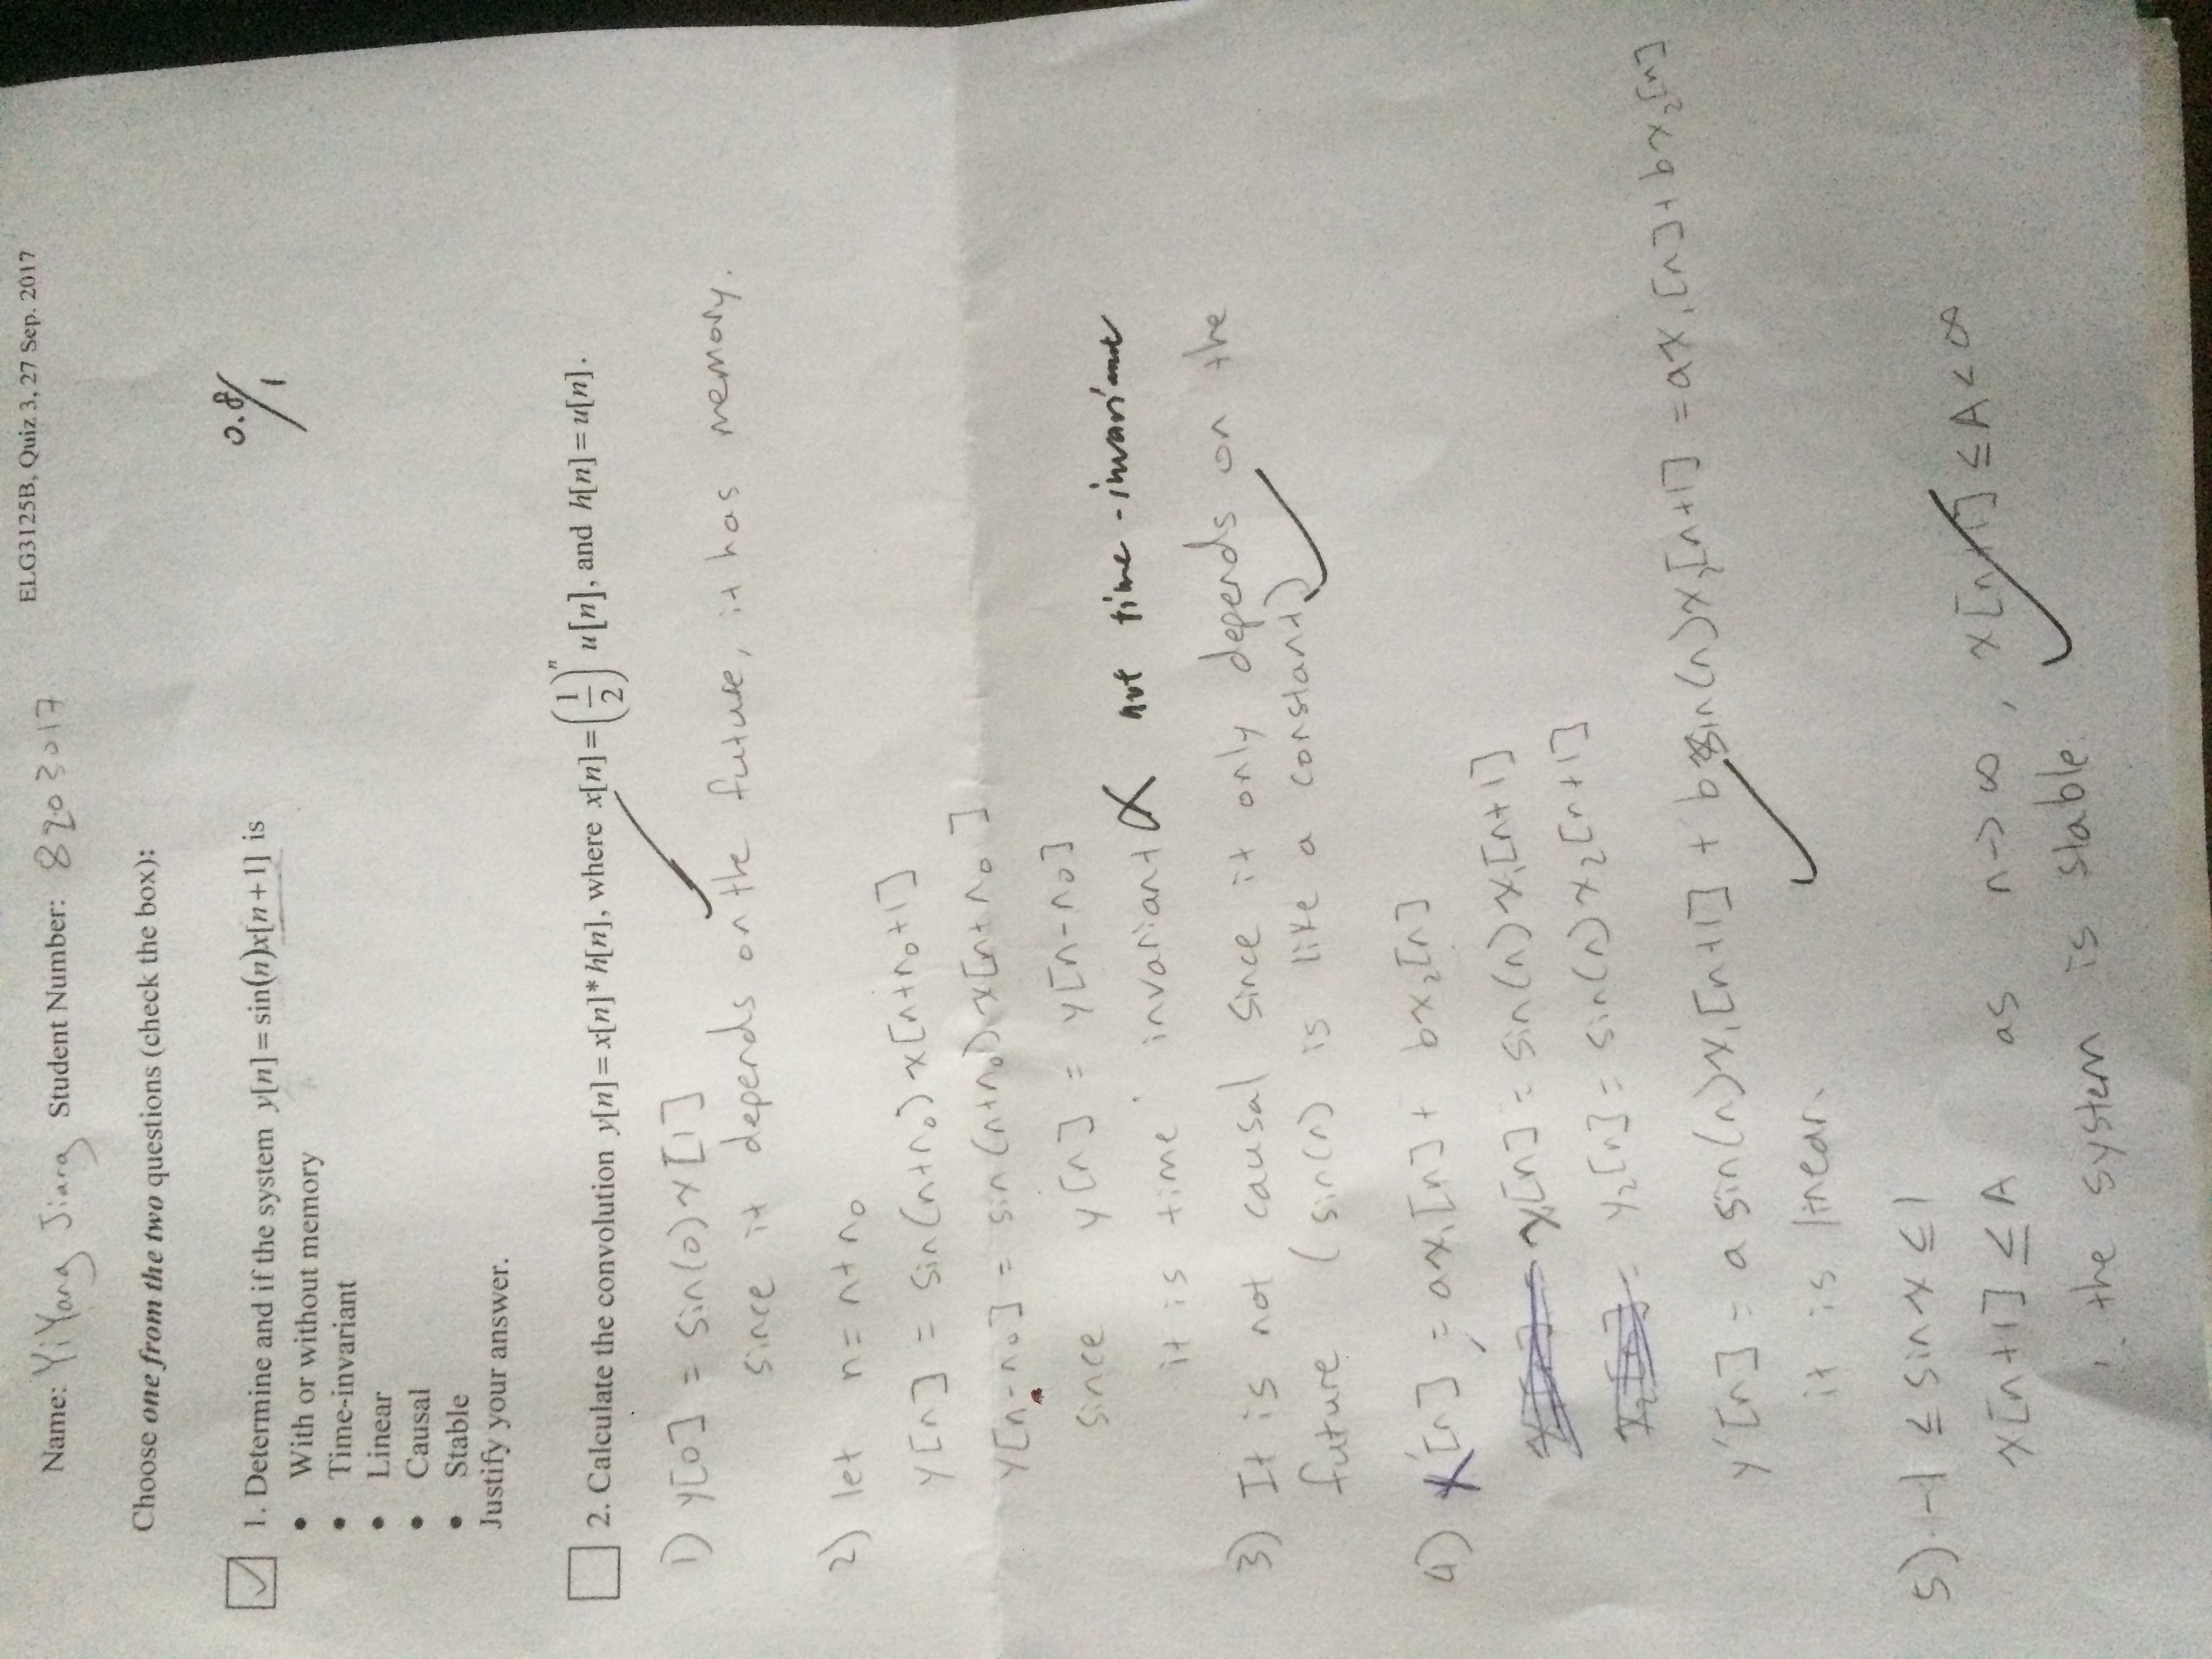 Name: YiYang Jiang Student Number: 8203017 ELG3125B, Quiz 3, 27 Sep. 2017
Choose one from the two questions (check the box):
0.8/1
1. Determine and if the system y[n] = sin(n)x[n+1] is
• With or without memory
• Time-invariant
• Linear
• Causal
• Stable
Justify your answer.
2. Calculate the convolution y[n] = x[n]* h[n], where x[n] = (1/2)^n u[n], and h[n] = u[n].
1) y[0] = sin(0) x[1]
since it depends on the future, it has memory.
2) let n = n+n₀
y[n] = sin(n+n₀) x[n+n₀+1]
y[n-n₀] = sin(n+n₀) x[n+n₀]
since y[n] = y[n-n₀]
it is time invariant not time-invariant
3) It is not causal since it only depends on the
future (sin(n) is like a constant)
4) x'[n] = ax₁[n] + bx₂[n]
y₁[n] = sin(n) x₁[n+1]
y₂[n] = sin(n) x₂[n+1]
y'[n] = a sin(n) x₁[n+1] + b sin(n) x₂[n+1] = ax₁[n] + bx₂[n]
it is linear.
5) -1 ≤ sin x ≤ 1
x[n+1] ≤ A as n→∞, x[n+1] ≤ A < ∞
∴ the system is stable.